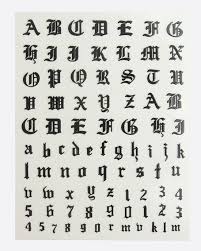 A B C D E F G
H I J K L M N
O P Q R S T U
V W X Y Z A B
C D E F G H I
a b c d e f g h i j k l m
n o p q r s t u
v w x y z 1 2 3 4
5 6 7 8 9 0 1 2 3 4
5 6 7 8 9 0 i j k l m